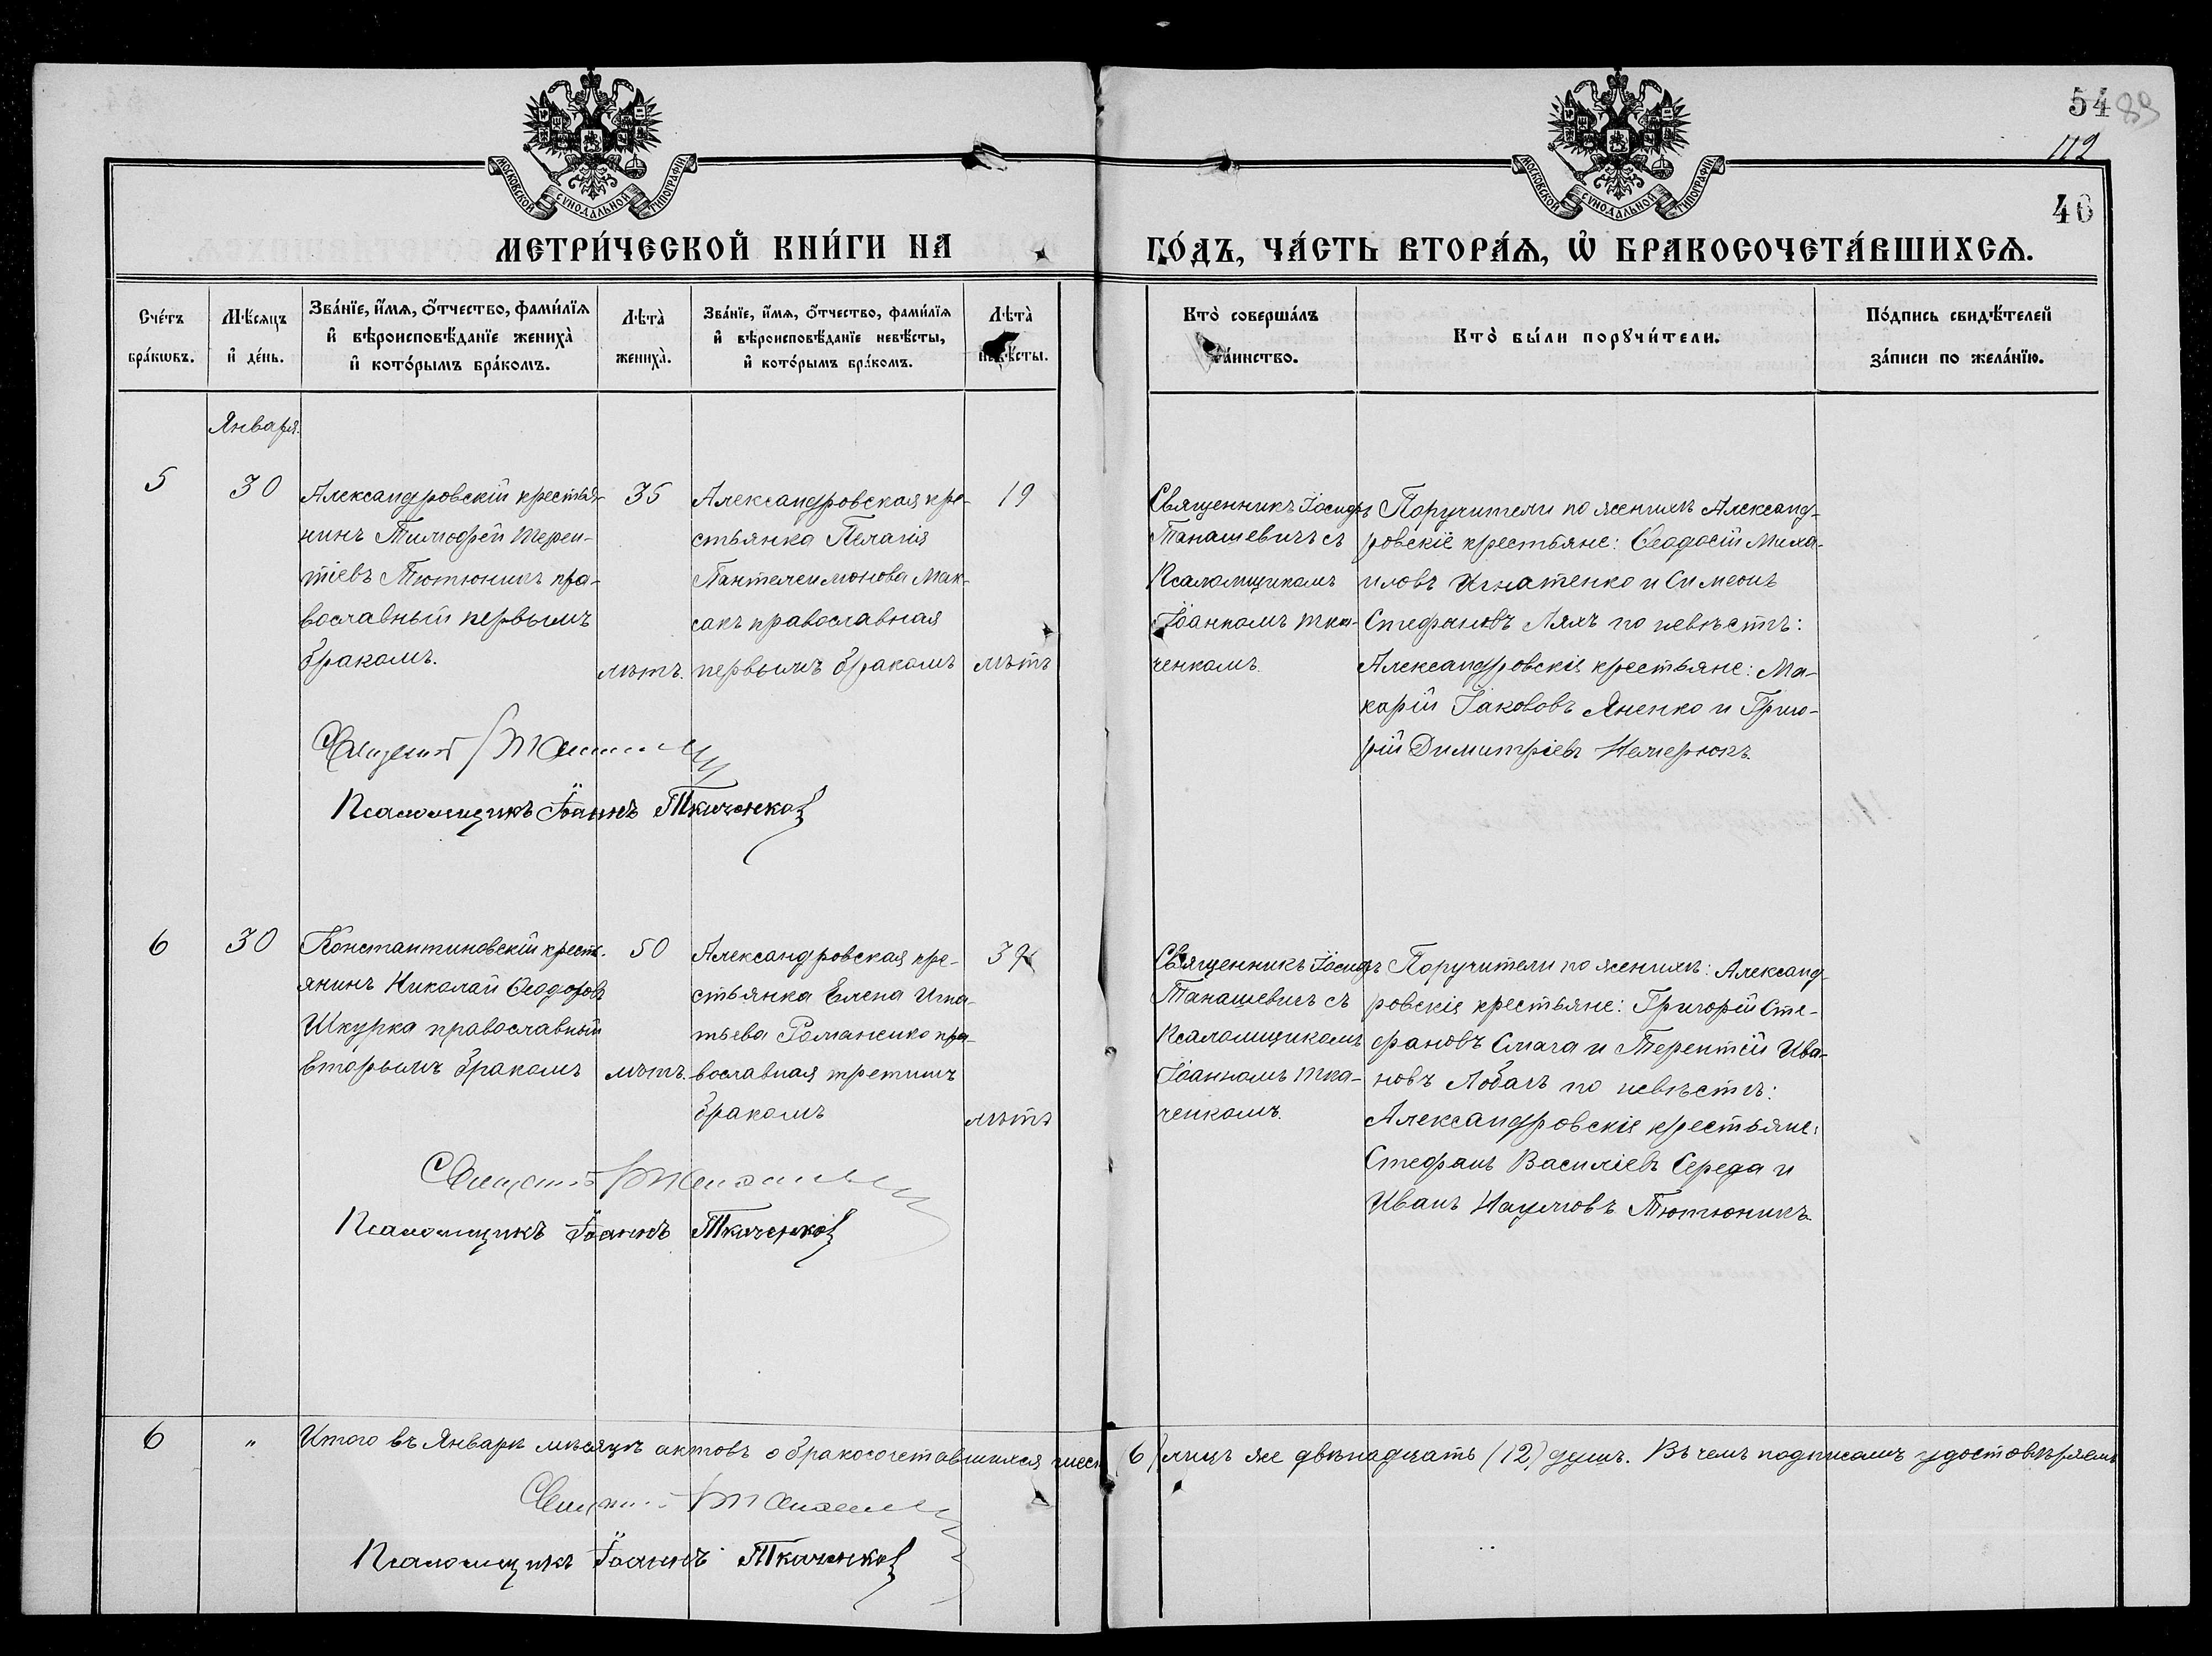 МОСКОВСКОЙ СѴНОДАЛЬНОЙ ТИПОГРАФІИ
МОСКОВСКОЙ СѴНОДАЛЬНОЙ ТИПОГРАФІИ
54 89
112
46
МЕТРИ́ЧЕСКОЙ КНИ́ГИ НА
ГО́ДЪ, ЧА́СТЬ ВТОРА́Ѧ, Ѽ БРАКОСОЧЕТА́ВШИХСѦ.
Сче́тъ
бра́кѡвъ.
Мѣ́сяцъ
и҆ де́нь.
Зва́нїе, и҆́мѧ, ѻ҆́тчество, фами́лїѧ
и҆ вѣроисповѣ́данїе жениха̀
и҆ кото́рымъ бра́комъ.
Лѣта̀
жениха̀.
Зва́нїе, и҆́мѧ, ѻ҆́тчество, фами́лїѧ
и҆ вѣроисповѣ́данїе невѣ́сты,
и҆ кото́рымъ бра́комъ.
Лѣта̀
невѣ́сты.
Кто̀ соверша́лъ
та́инство.
Кто̀ бы́ли порꙋчи́тели.
По́дпись свидѣ́телей
за́писи по жела́нїю.
Января.
5
30
Александровскій крестья-
нинъ Тимофей Терен-
тіевъ Тютюникъ пра-
вославный первымъ
бракомъ.
35
лѣтъ.
Александровская кре-
стьянка Пелагія
Пантелеимонова Мак-
сакъ православная
первымъ бракомъ
19
лѣтъ
Священникъ Іосифъ
Танашевичъ съ
Псаломщикомъ
Іоанномъ Тка-
ченкомъ.
Поручители по женихѣ Александ-
ровскіе крестьяне: Ѳеодосій Миха-
иловъ Игнатенко и Симеонъ
Стефановъ Ляхъ по невѣстѣ:
Александровскіе крестьяне: Ма-
карій Іаковъ Яненко и Григо-
рій Димитріевъ Немерюкъ.
Священникъ І Танашевичъ
Псаломщикъ Іоаннъ Ткаченко
6
30
Константиновскій кресть-
янинъ Николай Ѳеодоровъ
Шкурка православный
вторымъ бракомъ
50
лѣтъ.
Александровская кре-
стьянка Елена Игна-
тьева Романенко пра-
вославная третимъ
бракомъ
39
лѣтъ
Священникъ Іосифъ
Танашевичъ съ
Псаломщикомъ
Іоанномъ Тка-
ченкомъ.
Поручители по женихѣ: Александ-
ровскіе крестьяне: Григорій Сте-
фановъ Смага и Терентій Ива-
новъ Лобачъ по невѣстѣ:
Александровскіе крестьяне:
Стефанъ Василіевъ Середа и
Иванъ Наумовъ Тютюникъ.
Священникъ І Танашевичъ
Псаломщикъ Іоаннъ Ткаченко
6 " Итого въ Январѣ мѣсяцѣ актовъ о бракосочетавшихся шесть (6) лицъ же двѣнадцать (12) душъ. Въ чемъ подписомъ удостовѣряемъ
Священникъ І Танашевичъ
Псаломщикъ Іоаннъ Ткаченко